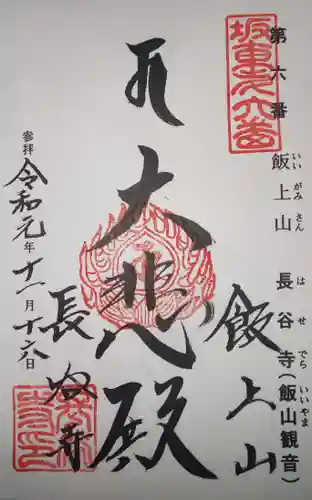 第六番
飯上山 長谷寺(飯山観音)
いいがみさん はせでら いいやま
坂東第六番
飯上山
大悲殿
長谷寺
参拝
令和元年十一月十六日